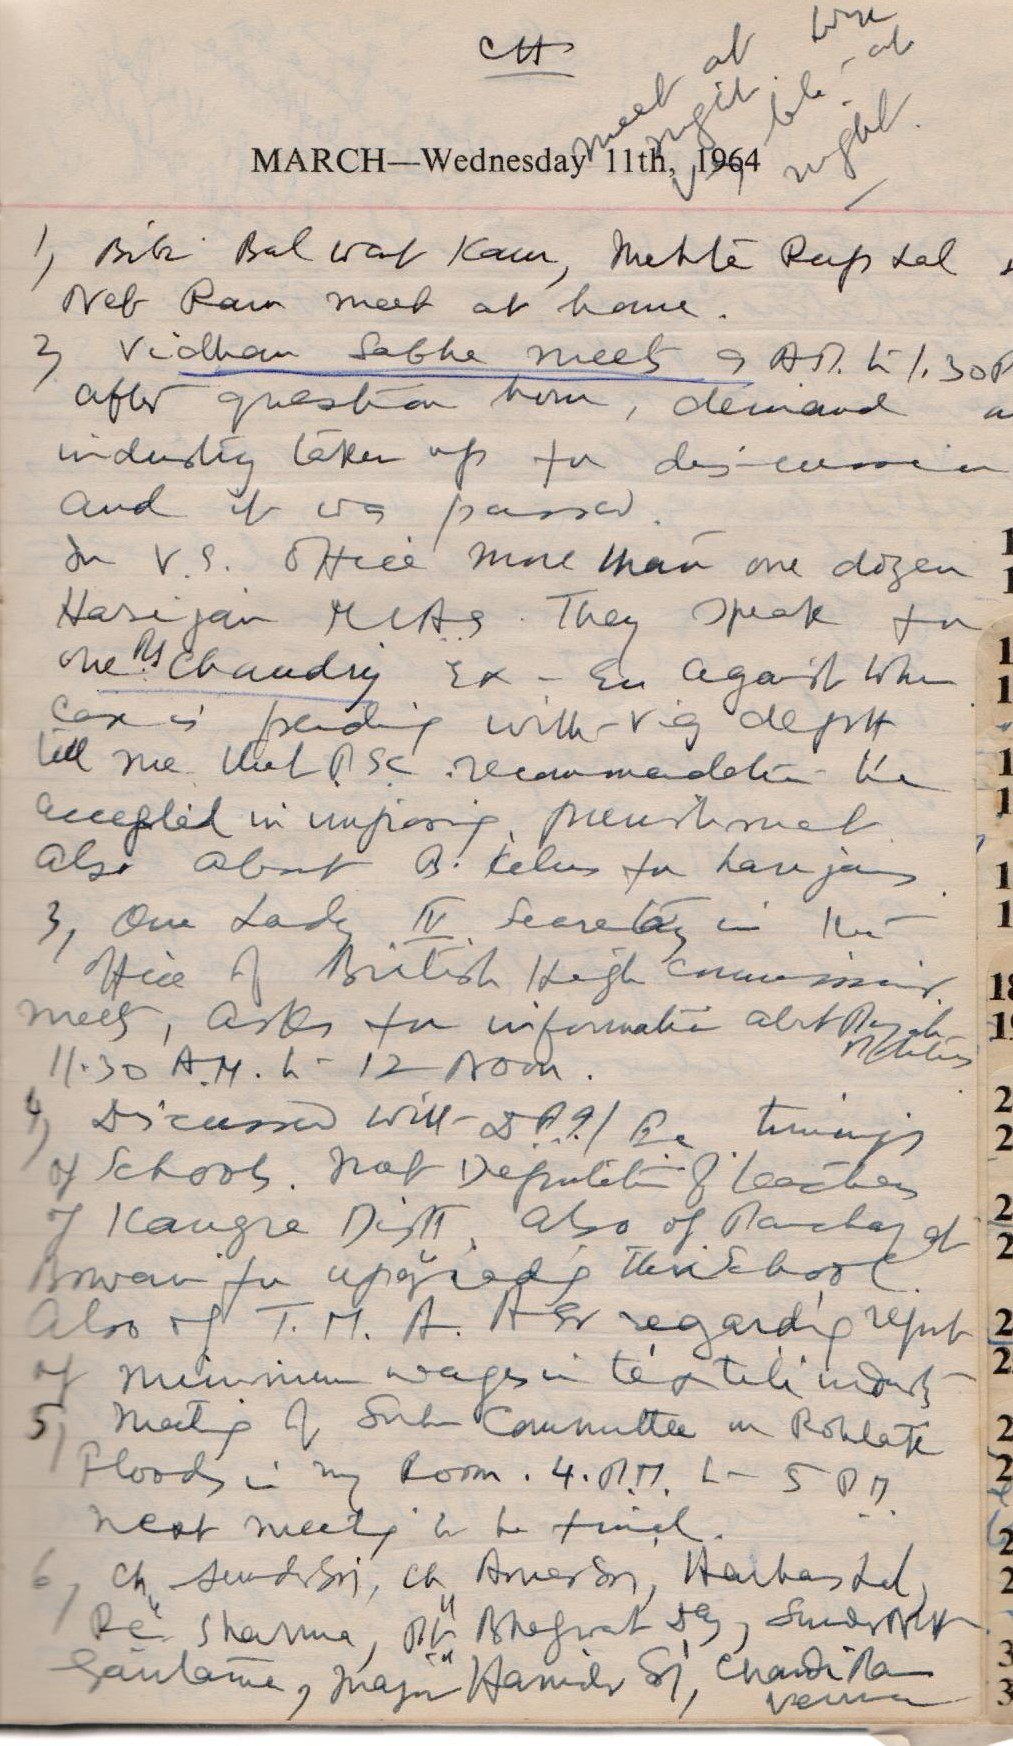 CH
meet at
night
late at
night.
MARCH—Wednesday 11th, 1964
1, Bibi Balwant Kaur, Mehta Rup Lal &
Neb Ram meet at home.
2, Vidhan Sabha meets 9 AM. to 1.30 P
after question hour, demand
industry taken up for discussion
and it was passed.
In V.S. Office more than one dozen
Harijan MLAs. They speak for
one Chaudry Ex-En against whom
case is pending with Vig deptt
tell me that PSC recommendation be
accepted in imposing punishment
Also about B. Kelus for harijans.
3, One Lady IV Secretary in the
office of British High Commissioner
meets, asks for information abt Punjab
Politics
11.30 A.M. to 12 Noon.
4, Discussed with D.P.I / Re timings
of Schools. Met Deputation of teachers
of Kangra Distt. Also of Panchayat
for upgrading their School.
Also of T. M. A. Asr regarding report
of minimum wages in textile industry
5, Meeting of Sub Committee on Rohtak
Floods in my Room. 4. P.M. to 5 P.M.
Next meeting to be final.
6, Ch Sunder Sg, Ch Amar Sg, Harbans Lal,
Sharma, Pt Bhagwat Dg, Sunder
Gautama, Major Harinder Sg, Chandi Ram
Verma
1
1
1
1
1
1
1
1
18
19
2
2
2
2
2
2
2
2
2
2
3
3